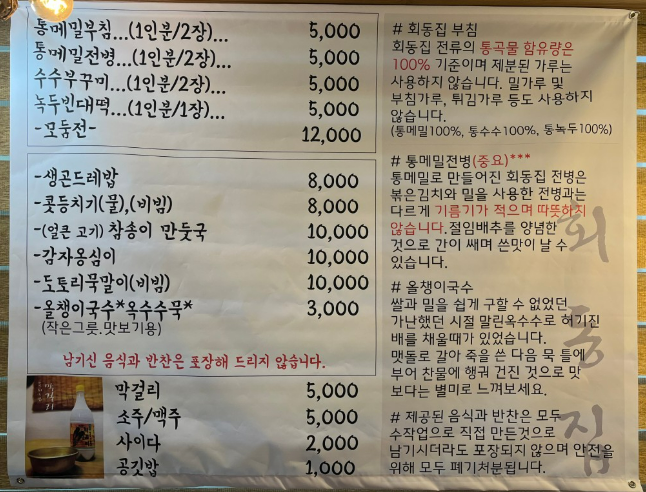 통메밀부침...(1인분/2장)... 5,000
통메밀전병...(1인분/2장)... 5,000
수수부꾸미...(1인분/2장)... 5,000
녹두빈대떡...(1인분/1장)... 5,000
-모둠전- 12,000
-생곤드레밥 8,000
-콧등치기(물),(비빔) 8,000
-(얼큰 고기) 참송이 만둣국 10,000
-감자옹심이 10,000
-도토리묵말이(비빔) 10,000
-올챙이국수*옥수수묵* 3,000
(작은그릇.맛보기용)
남기신 음식과 반찬은 포장해 드리지 않습니다.
막걸리 5,000
소주/맥주 5,000
사이다 2,000
공깃밥 1,000
# 회동집 부침
회동집 전류의 통곡물 함유량은
100% 기준이며 제분된 가루는
사용하지 않습니다. 밀가루 및
부침가루, 튀김가루 등도 사용하지
않습니다.
(통메밀100%, 통수수100%, 통녹두100%)
# 통메밀전병(중요)***
통메밀로 만들어진 회동집 전병은
볶은김치와 밀을 사용한 전병과는
다르게 기름기가 적으며 따뜻하지
않습니다. 절임배추를 양념한
것으로 간이 쌔며 쓴맛이 날 수
있습니다.
# 올챙이국수
쌀과 밀을 쉽게 구할 수 없었던
가난했던 시절 말린옥수수로 허기진
배를 채울때가 있었습니다.
맷돌로 갈아 죽을 쑨 다음 묵 틀에
부어 찬물에 행궈 건진 것으로 맛
보다는 별미로 느껴보세요.
# 제공된 음식과 반찬은 모두
수작업으로 직접 만든것으로
남기시더라도 포장되지 않으며 안전을
위해 모두 폐기처분됩니다.
회동집